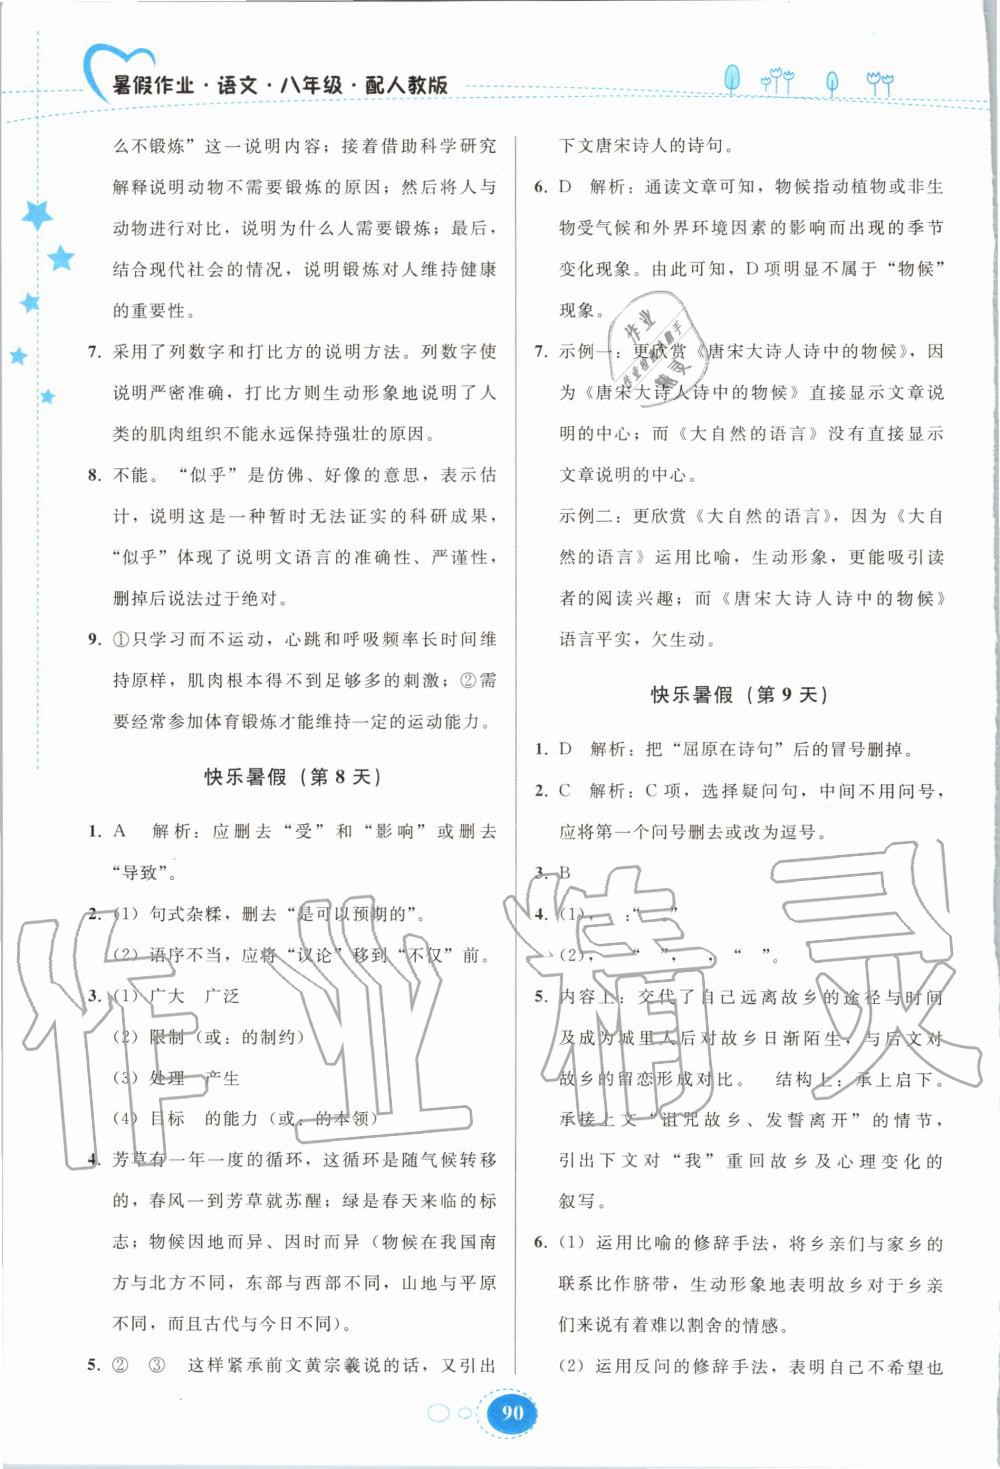 暑假作业·语文·八年级·配人教版
么不锻炼”这一说明内容；接着借助科学研究
解释说明动物不需要锻炼的原因；然后将人与
动物进行对比，说明为什么人需要锻炼；最后，
结合现代社会的情况，说明锻炼对人维持健康
的重要性。
7. 采用了列数字和打比方的说明方法。列数字使
说明严密准确，打比方则生动形象地说明了人
类的肌肉组织不能永远保持强壮的原因。
8. 不能。“似乎”是仿佛、好像的意思，表示估
计，说明这是一种暂时无法证实的科研成果，
“似乎”体现了说明文语言的准确性、严谨性，
删掉后说法过于绝对。
9. ①只学习而不运动，心跳和呼吸频率长时间维
持原样，肌肉根本得不到足够多的刺激；②需
要经常参加体育锻炼才能维持一定的运动能力。
快乐暑假（第 8 天）
1. A 解析：应删去“受”和“影响”或删去
“导致”。
2. （1）句式杂糅，删去“是可以预期的”。
（2）语序不当，应将“议论”移到“不仅”前。
3. （1）广大 广泛
（2）限制（或：的制约）
（3）处理 产生
（4）目标 的能力（或：的本领）
4. 芳草有一年一度的循环，这循环是随气候转移
的，春风一到芳草就苏醒；绿是春天来临的标
志；物候因地而异、因时而异（物候在我国南
方与北方不同，东部与西部不同，山地与平原
不同，而且古代与今日不同）。
5. ② ③ 这样紧承前文黄宗羲说的话，又引出
下文唐宋诗人的诗句。
6. D 解析：通读文章可知，物候指动植物或非生
物受气候和外界环境因素的影响而出现的季节
变化现象。由此可知，D 项明显不属于“物候”
现象。
7. 示例一：更欣赏《唐宋大诗人诗中的物候》，因
为《唐宋大诗人诗中的物候》直接显示文章说
明的中心；而《大自然的语言》没有直接显示
文章说明的中心。
示例二：更欣赏《大自然的语言》，因为《大自
然的语言》运用比喻，生动形象，更能吸引读
者的阅读兴趣；而《唐宋大诗人诗中的物候》
语言平实，欠生动。
快乐暑假（第 9 天）
1. D 解析：把“屈原在诗句”后的冒号删掉。
2. C 解析：C 项，选择疑问句，中间不用问号，
应将第一个问号删去或改为逗号。
3. B
4. （1）， ：“ 。”
（2）， “ ”， ， “ ”。
5. 内容上：交代了自己远离故乡的途径与时间
及成为城里人后对故乡日渐陌生，与后文对
故乡的留恋形成对比。 结构上：承上启下。
承接上文“诅咒故乡、发誓离开”的情节，
引出下文对“我”重回故乡及心理变化的
叙写。
6. （1）运用比喻的修辞手法，将乡亲们与家乡的
联系比作脐带，生动形象地表明故乡对于乡亲
们来说有着难以割舍的情感。
（2）运用反问的修辞手法，表明自己不希望也
90
作业精灵